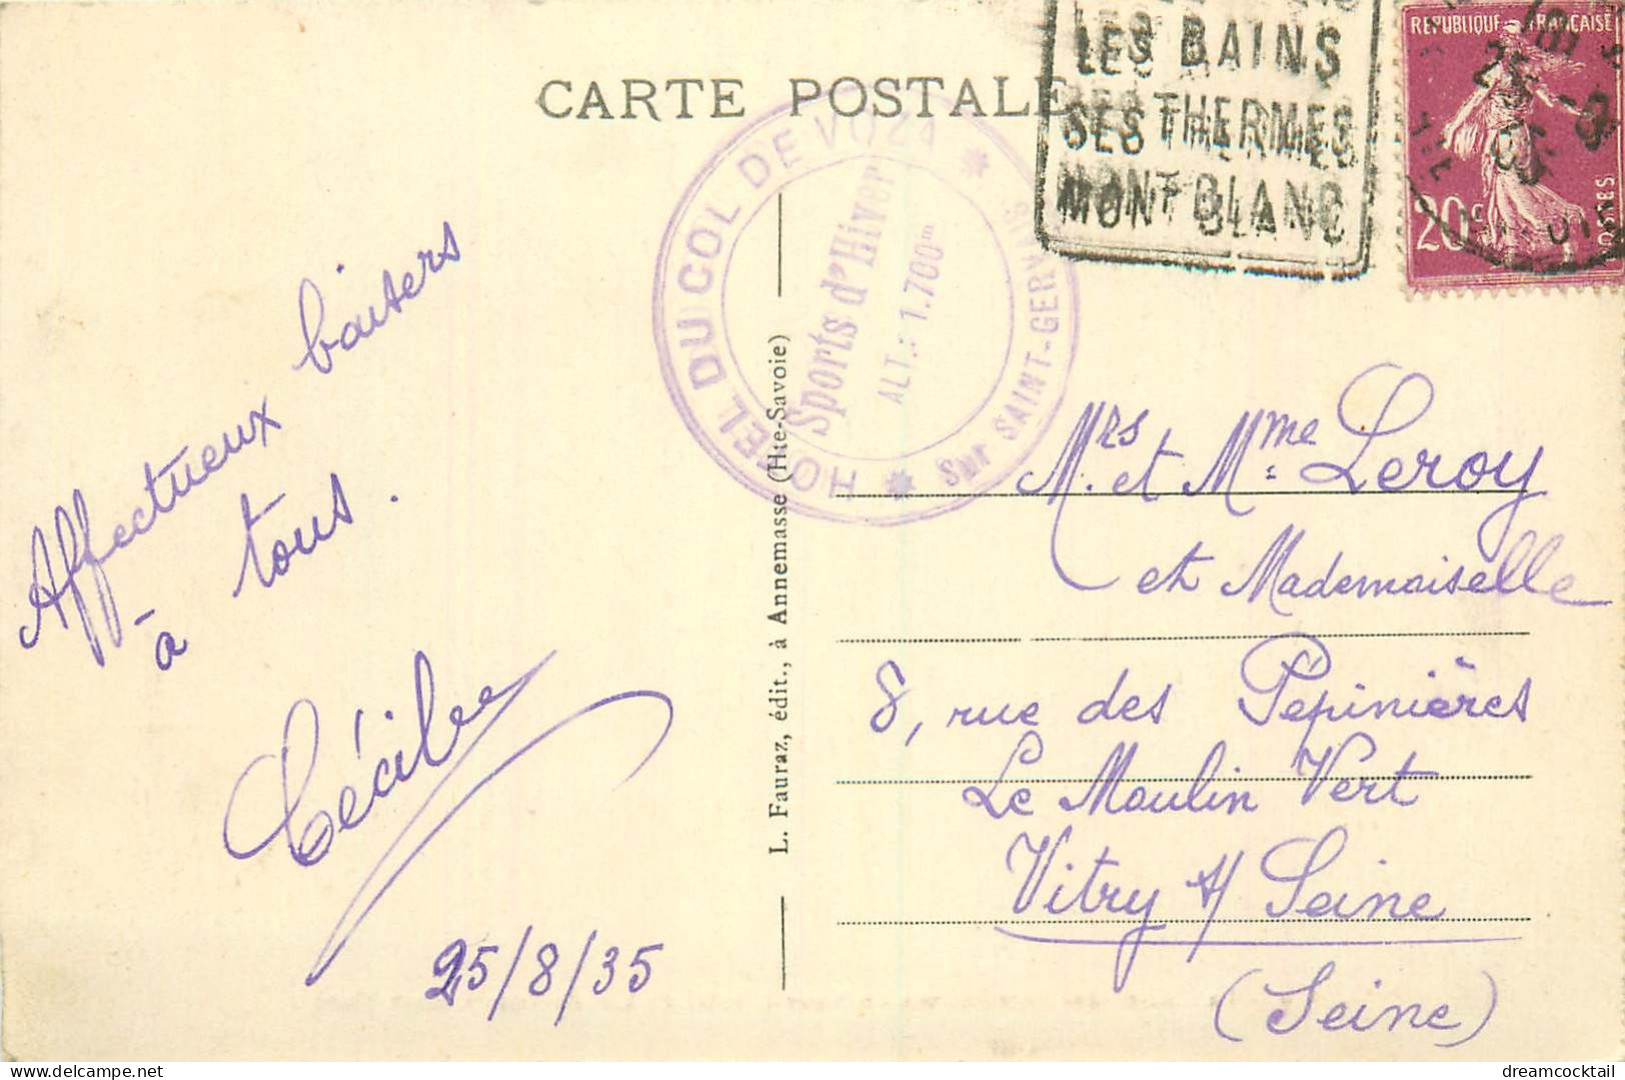 CARTE POSTALE
LES BAINS
SES THERMES
MONT BLANC
REPUBLIQUE FRANÇAISE
20c
POSTES
25 -8
35
HOTEL DU COL DE VOZA
Sur SAINT-GERVAIS
Sports d'Hiver
ALT.: 1.700m
L. Fauraz, édit., à Annemasse (Hte-Savoie)
Affectueux baisers
à tous.
Cécile
25/8/35
Mrs. et Mme Leroy
et Mademoiselle
8, rue des Pépinières
Le Moulin Vert
Vitry s/ Seine
(Seine)
dreamcocktail